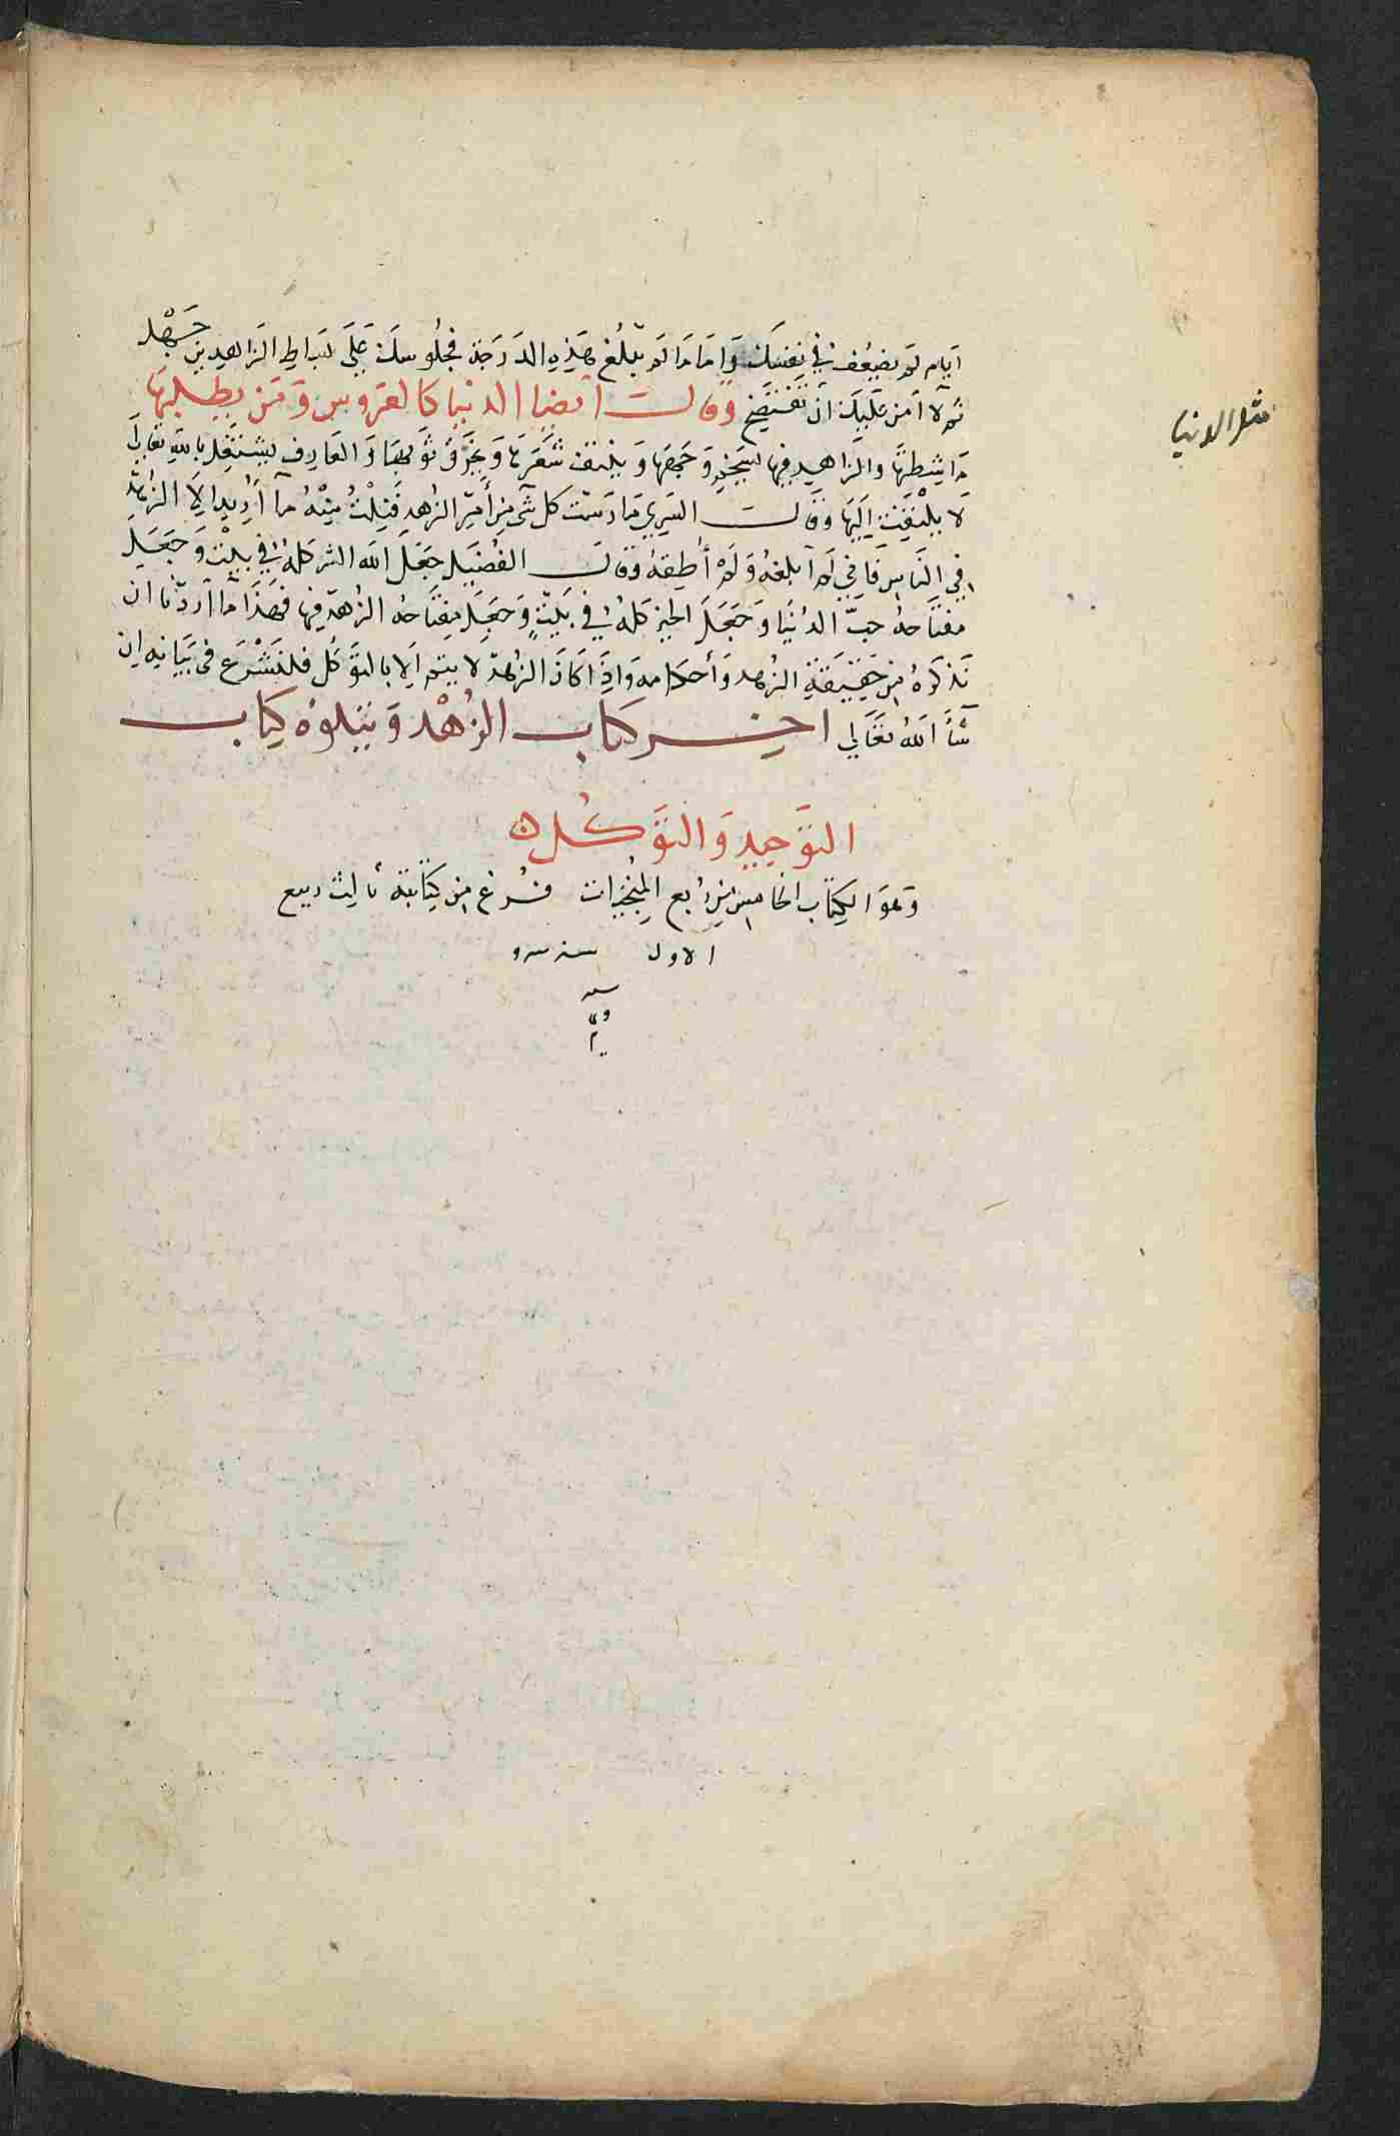 ايام لم يضعف في نفسك واما ما لم يبلغ هذه الدرجة فجلوسك على بساط الزاهدين جهل
ثم لا آمن عليك ان تفتضح وقالت ايضا الدنيا كالعروس ومن يطلبها
مثل الدنيا
ماشطتها والزاهد فيها يسخم وجهها وينتف شعرها ويخرق ثوبها والعارف يشتغل بالله تعالى
لا يلتفت اليها وقالت السري مارست كل شي من امر الزهد فنلت منه ما اريد الا الزهد
في الناس فاني لم ابلغه ولم اطقه وقال الفضيل جعل الله الشر كله في بيت وجعل
مفتاحه حب الدنيا وجعل الخير كله في بيت وجعل مفتاحه الزهد فيها فهذا ما اردنا ان
نذكره من حقيقة الزهد واحكامه واذا كان الزهد لا يتم الا بالتوكل فلنشرع في بيانه ان
شآ الله تعالى اخر كتاب الزهد ويتلوه كتاب
التوحيد والتوكل
وهو الكتاب الخامس من ربع المنجيات فرغ من كتابته ثالث ربيع
الاول سنة